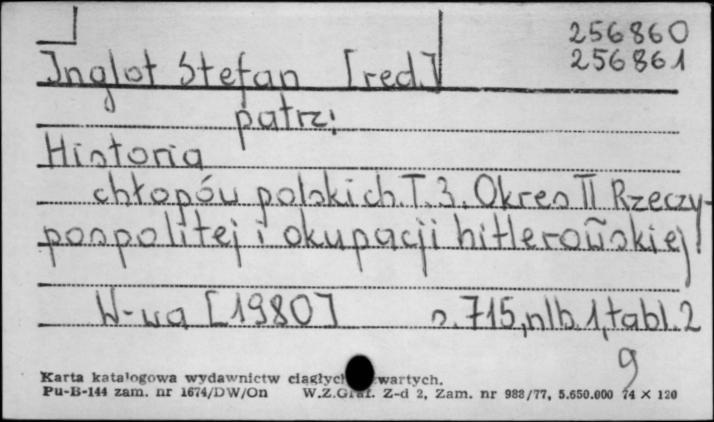 256860
256861
Inglot Stefan [red.]
patrz:
Historia
chłopów polskich. T. 3. Okres II Rzeczy-
pospolitej i okupacji hitlerowskiej
W-wa [1980] s. 715, nlb. 1, tabl. 2
9
Karta katalogowa wydawnictw ciągłych zwartych.
Pu-B-144 zam. nr 1674/DW/On W.Z.Graf. Z-d 2, Zam. nr 988/77, 5.650.000 74 × 120